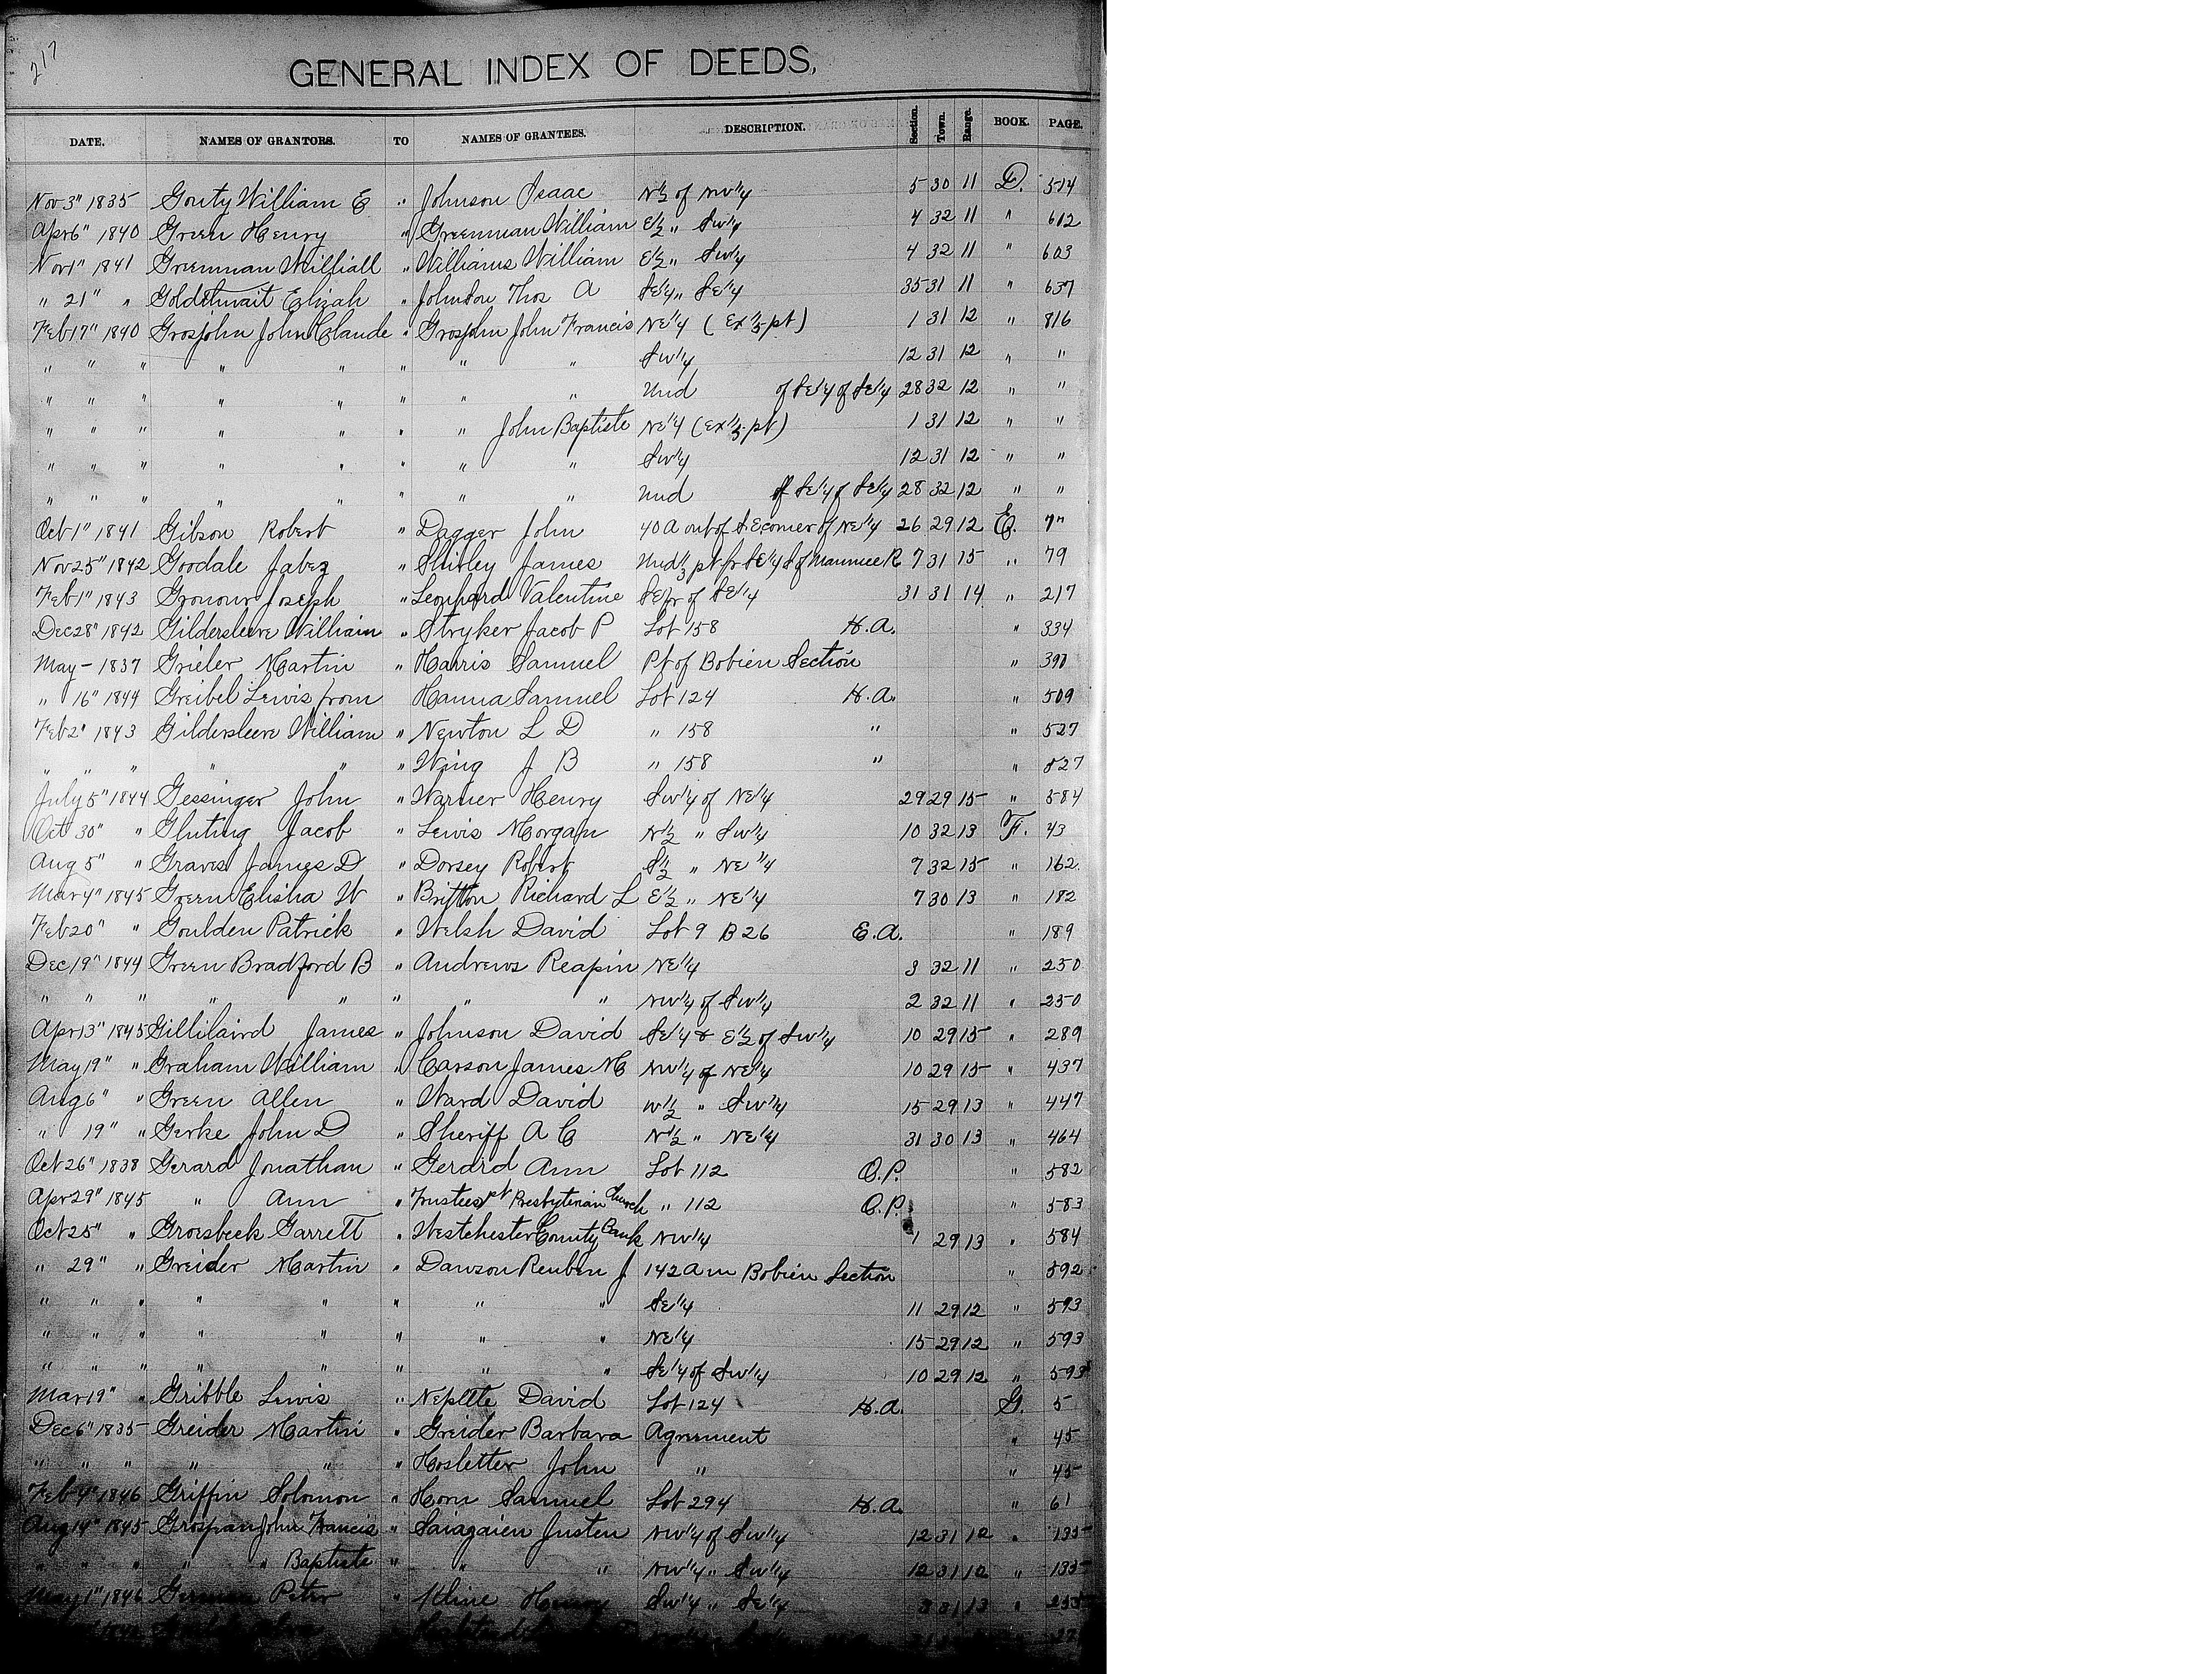 217
GENERAL INDEX OF DEEDS,
DATE. NAMES OF GRANTORS. TO NAMES OF GRANTEES. DESCRIPTION. Section. Town. Range. BOOK. PAGE.
Nov 3" 1835 Gouty William E " Johnson Isaac N½ of NW¼ 5 30 11 D. 514
Apr 6" 1840 Green Henry " Greenman William E½ " SW¼ 4 32 11 " 602
Nov 1" 1841 Greenman Williall " Williams William E½ " SW¼ 4 32 11 " 603
" 21" " Goldthwait Elizah " Johnson Thos A SE¼ " SE¼ 35 31 11 " 637
Feb 17" 1840 Grosjohn John Claude " Grosjohn John Francis NE¼ (Ex ⅓ pt) 1 31 12 " 816
" " " " " " " " SW¼ 12 31 12 " "
" " " " " " " " Und of SE¼ of SE¼ 28 32 12 " "
" " " " " " " John Baptiste NE¼ (Ex ⅓ pt) 1 31 12 " "
" " " " " " " " SW¼ 12 31 12 " "
" " " " " " " " Und of SE¼ of SE¼ 28 32 12 " "
Oct 1" 1841 Gibson Robert " Dagger John 40 A out of S.E corner of NE¼ 26 29 12 E. 7"
Nov 25" 1842 Goodale Jabez " Shirley James Und ⅓ pt fr SE¼ S of Maumee R 7 31 15 " 79
Feb 1" 1843 Gronour Joseph " Leonhard Valentine SE fr of SE¼ 31 31 14 " 217
Dec 28" 1842 Gildersleeve William " Stryker Jacob P Lot 158 H.A. " 334
May – 1837 Grieler Martin " Harris Samuel Pt of Bobien Section " 390
" 16" 1844 Greibel Lewis from Hanna Samuel Lot 124 H.A. " 509
Feb 2" 1843 Gildersleeve William " Newton L D " 158 " " 527
" " " " " " Wing J B " 158 " " 527
July 5" 1844 Gessinger John " Warner Henry SW¼ of NE¼ 29 29 15 " 584
Oct 30" " Gluting Jacob " Lewis Morgan N½ " SW¼ 10 32 13 F. 43
Aug 5" " Graves James D " Dorsey Robert S½ " NE¼ 7 32 15 " 162
Mar 4" 1845 Green Elisha W " Britton Richard L E½ " NE¼ 7 30 13 " 182
Feb 20" " Goulden Patrick " Welsh David Lot 9 B 26 E.A. " 189
Dec 19" 1844 Green Bradford B " Andrews Reapin NE¼ 3 32 11 " 250
" " " " " " " " NW¼ of SW¼ 2 32 11 " 250
Apr 13" 1845 Gillilaird James " Johnson David SE¼ & E½ of SW¼ 10 29 15 " 289
May 19" " Graham William " Carson James M NW¼ of NE¼ 10 29 15 " 437
Aug 6" " Green Allen " Ward David W½ " SW¼ 15 29 13 " 447
" 19" " Gerke John D " Sheriff A C N½ " NE¼ 31 30 13 " 464
Oct 26" 1838 Gerard Jonathan " Gerard Ann Lot 112 O.P. " 582
Apr 29" 1845 " Ann " Trustees 1st Presbyterian Church " 112 O.P. " 583
Oct 25" " Groesbeck Garrett " Westchester County Bank NW¼ 1 29 13 " 584
" 29" " Greider Martin " Dawson Reuben J 142 A in Bobien Section " 592
" " " " " " " " SE¼ 11 29 12 " 593
" " " " " " " " NE¼ 15 29 12 " 593
" " " " " " " " SE¼ of SW¼ 10 29 12 " 593
Mar 19" " Gribble Lewis " Neptte David Lot 124 H.A. G. 5
Dec 6" 1835 Greider Martin " Greider Barbara Agreement " 45
" " " " " " Hosletter John " " 45
Feb 4" 1846 Griffin Solomon " Horn Samuel Lot 294 H.A. " 61
Aug 14" 1845 Grospan John Francis " Saiagaien Justen NW¼ of SW¼ 12 31 12 " 135
" " " " " Baptiste " " " NW¼ " SW¼ 12 31 12 " 135
May 1" 1846 Peter " Kline Henry SW¼ " SE¼ 8 31 13 "